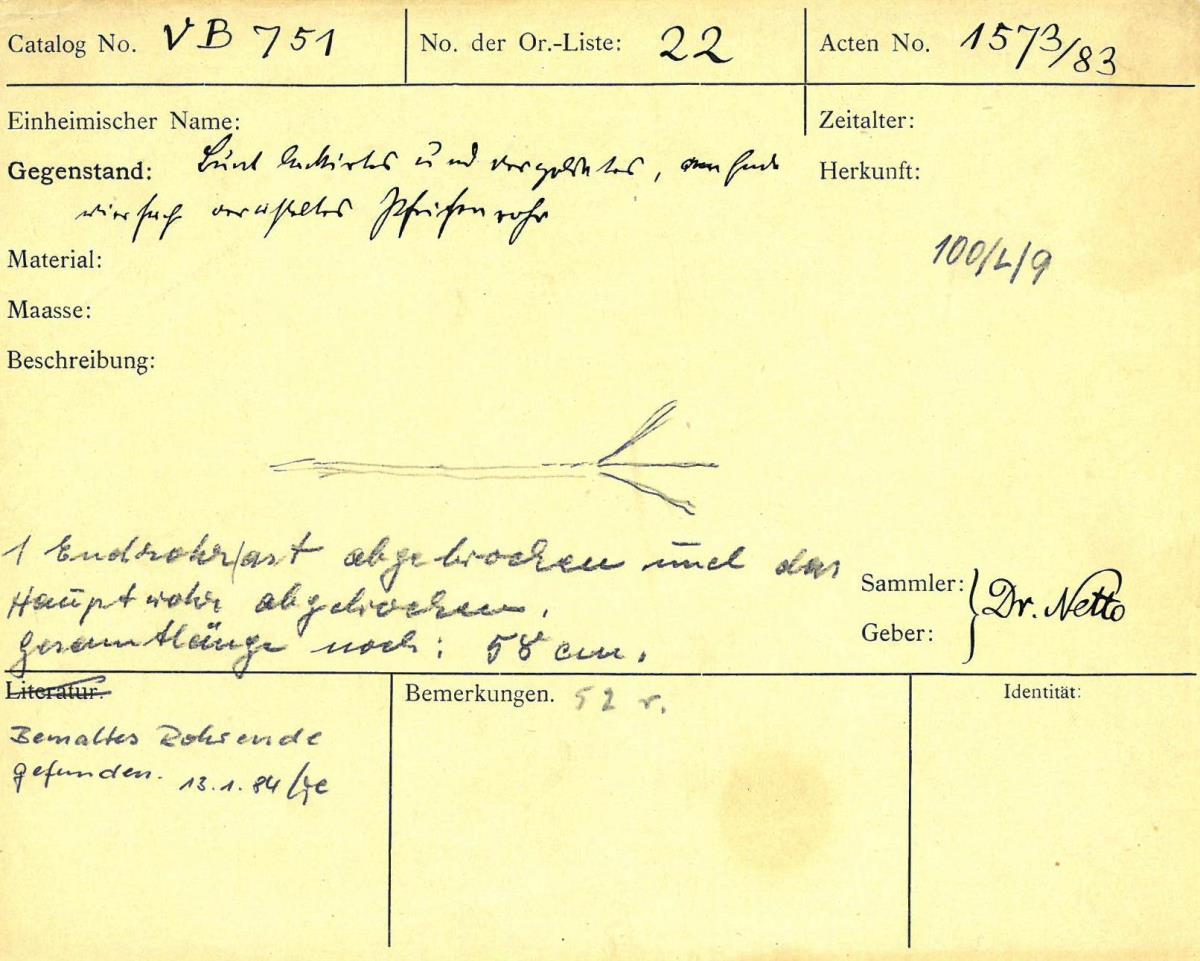 Catalog No. VB 751
No. der Or.-Liste: 22
Acten No. 1573/83
Einheimischer Name:
Zeitalter:
Gegenstand: Bunt lackirtes und vergoldetes, am Ende
vierfach verästeltes Pfeifenrohr
Herkunft:
100/L/9
Material:
Maasse:
Beschreibung:
1 Endrohr/ast abgebrochen und das
Hauptrohr abgebrochen.
Gesamtlänge noch: 58 cm.
Sammler:
Geber:
Dr. Netto
Literatur.
Bemaltes Rohrende
gefunden. 13.1.84
Bemerkungen. 52 r.
Identität: